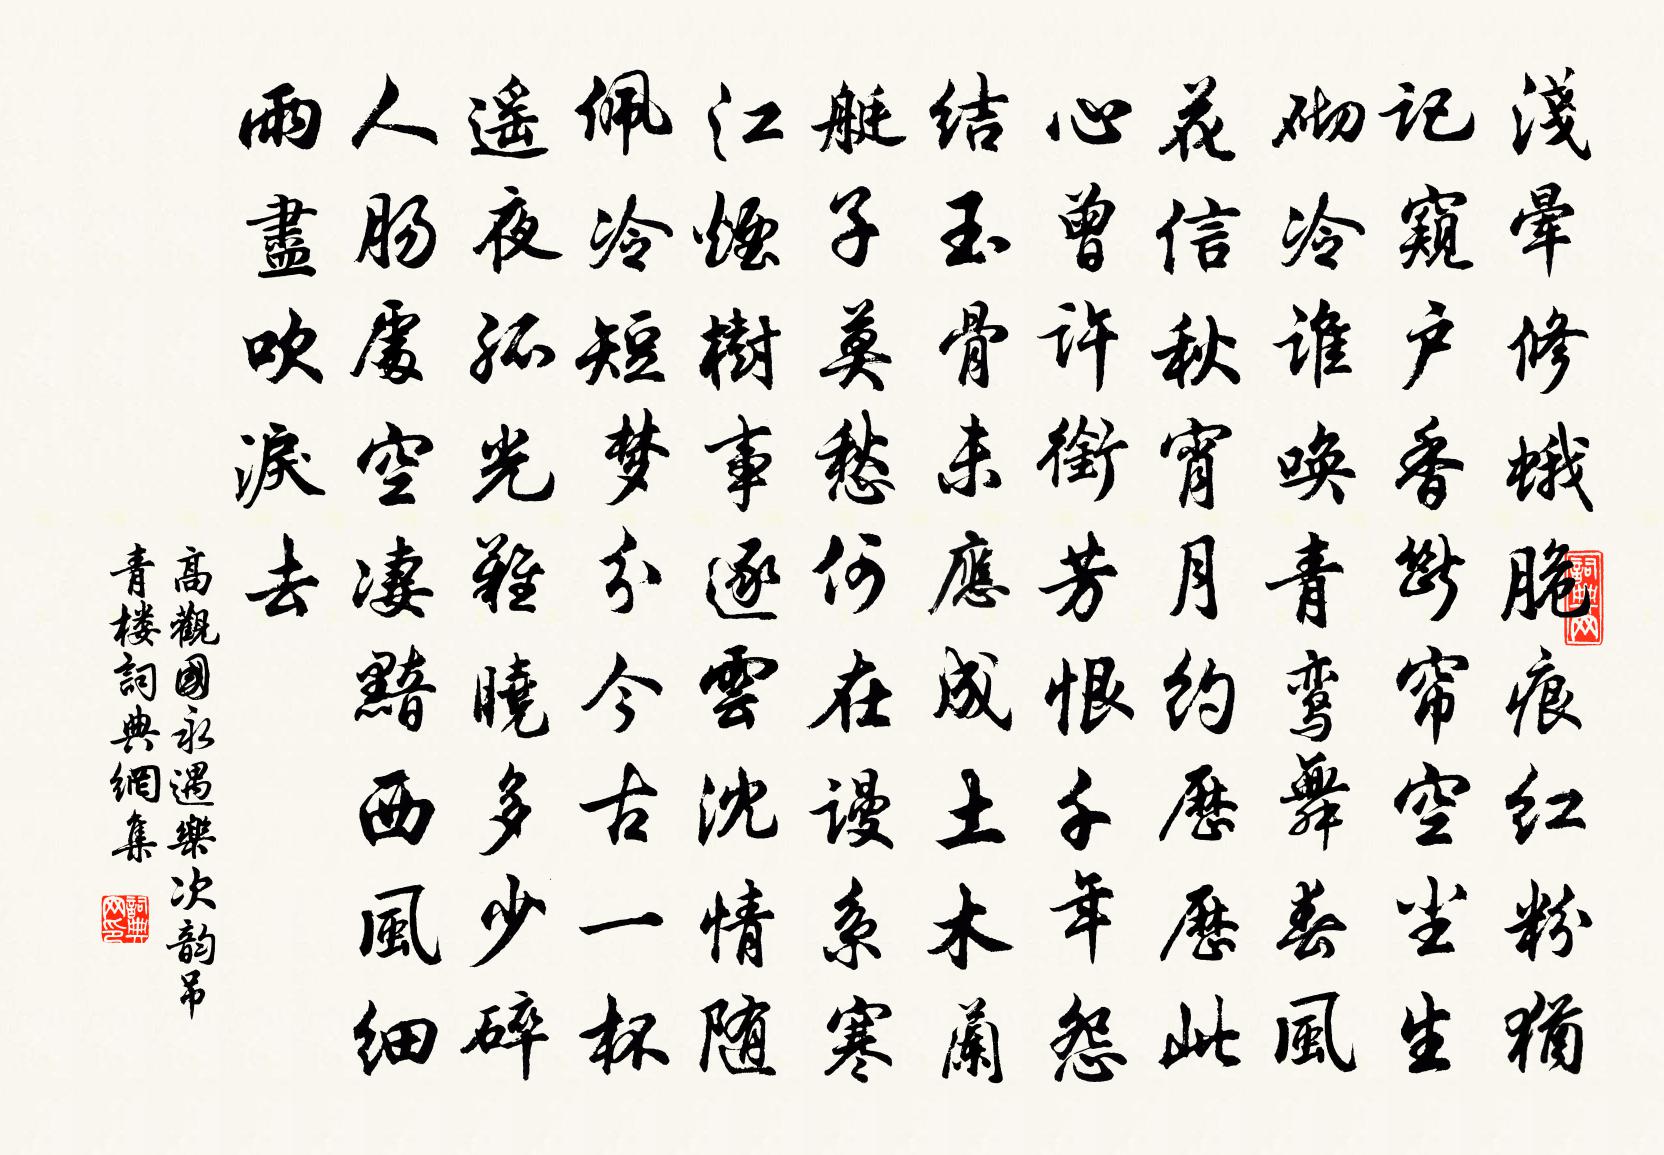 淺暈修蛾脆痕红粉猶
记窺户香斷帘空尘生
砌冷谁唤青鸾舞春風
花信秋宵月约歷歷此
心曾许銜芳恨千年怨
结玉骨未應成土木蘭
艇子莫愁何在谩系寒
江煙樹事逐雲沈情随
佩冷短梦分今古一杯
遥夜孤光難曉多少碎
人肠處空凄黯西風细
雨盡吹淚去
高觀國永遇樂次韵吊
青楼詞典網集
詞典网
詞典网印